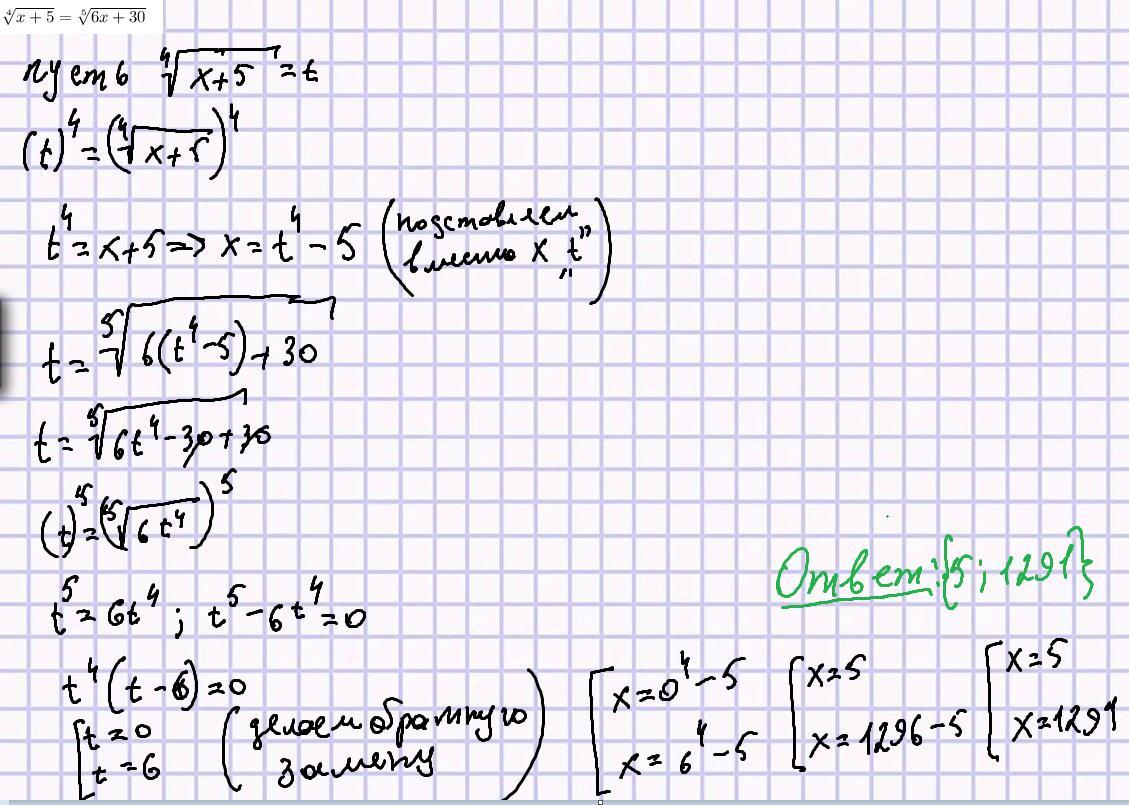 ∜x+5 = ⁵√6x+30
пусть ∜x+5 = t
(t)⁴ = (∜x+5)⁴
t⁴ = x+5 => x = t⁴ - 5 (подставляем
вместо x „t”)
t = ⁵√6(t⁴-5)+30
t = ⁵√6t⁴-30+30
(t)⁵ = (⁵√6t⁴)⁵
t⁵ = 6t⁴ ; t⁵ - 6t⁴ = 0
t⁴(t-6) = 0
[t = 0
t = 6
(делаем обратную
замену)
[x = 0⁴ - 5
x = 6⁴ - 5
[x = 5
x = 1296 - 5
[x = 5
x = 1291
Ответ: {5 ; 1291}